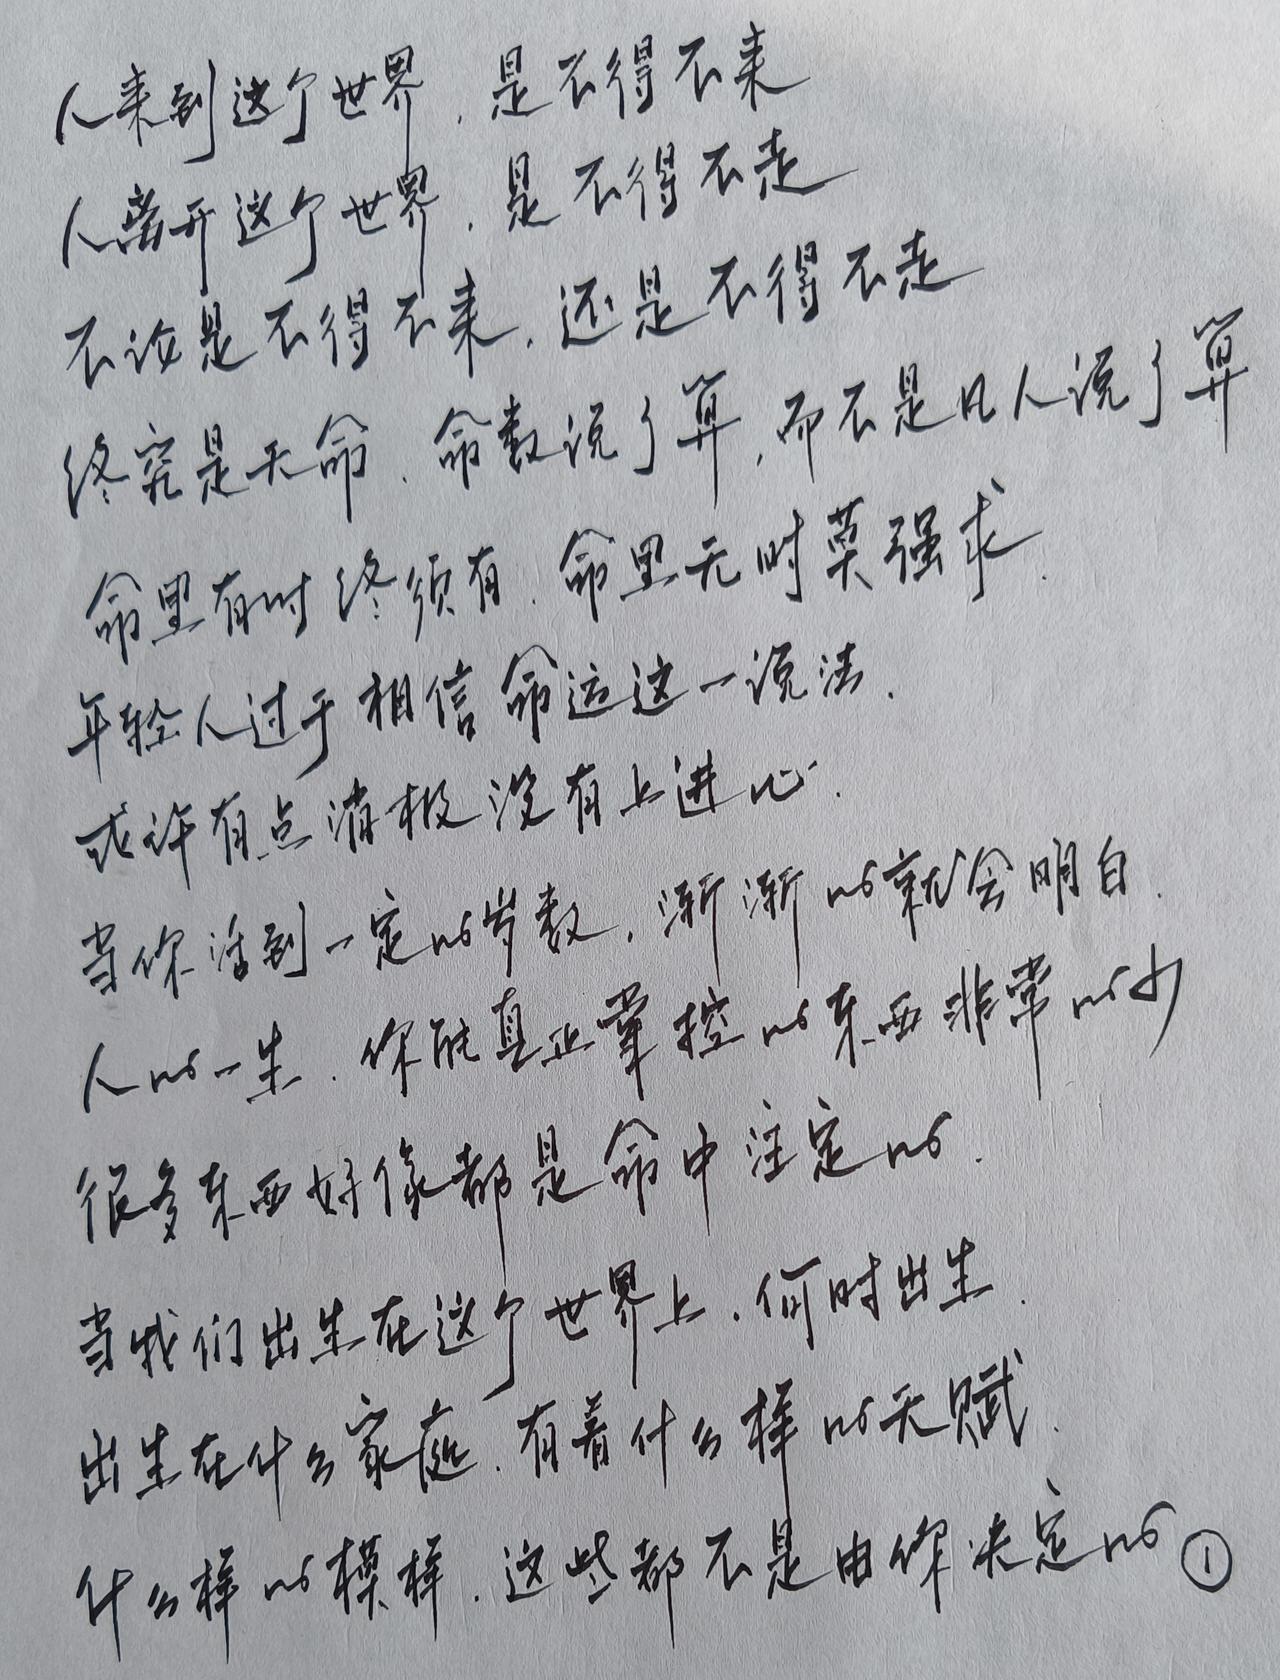 人来到这个世界，是不得不来
人离开这个世界，是不得不走
不论是不得不来，还是不得不走
终究是天命、命数说了算，而不是凡人说了算
命里有时终须有，命里无时莫强求.
年轻人过于相信命运这一说法.
或许有点消极没有上进心.
当你活到一定的岁数，渐渐的就会明白.
人的一生.你能真正掌控的东西非常的少
很多东西好像都是命中注定的.
当我们出生在这个世界上，何时出生.
出生在什么家庭.有着什么样的天赋.
什么样的模样.这些都不是由你决定的①